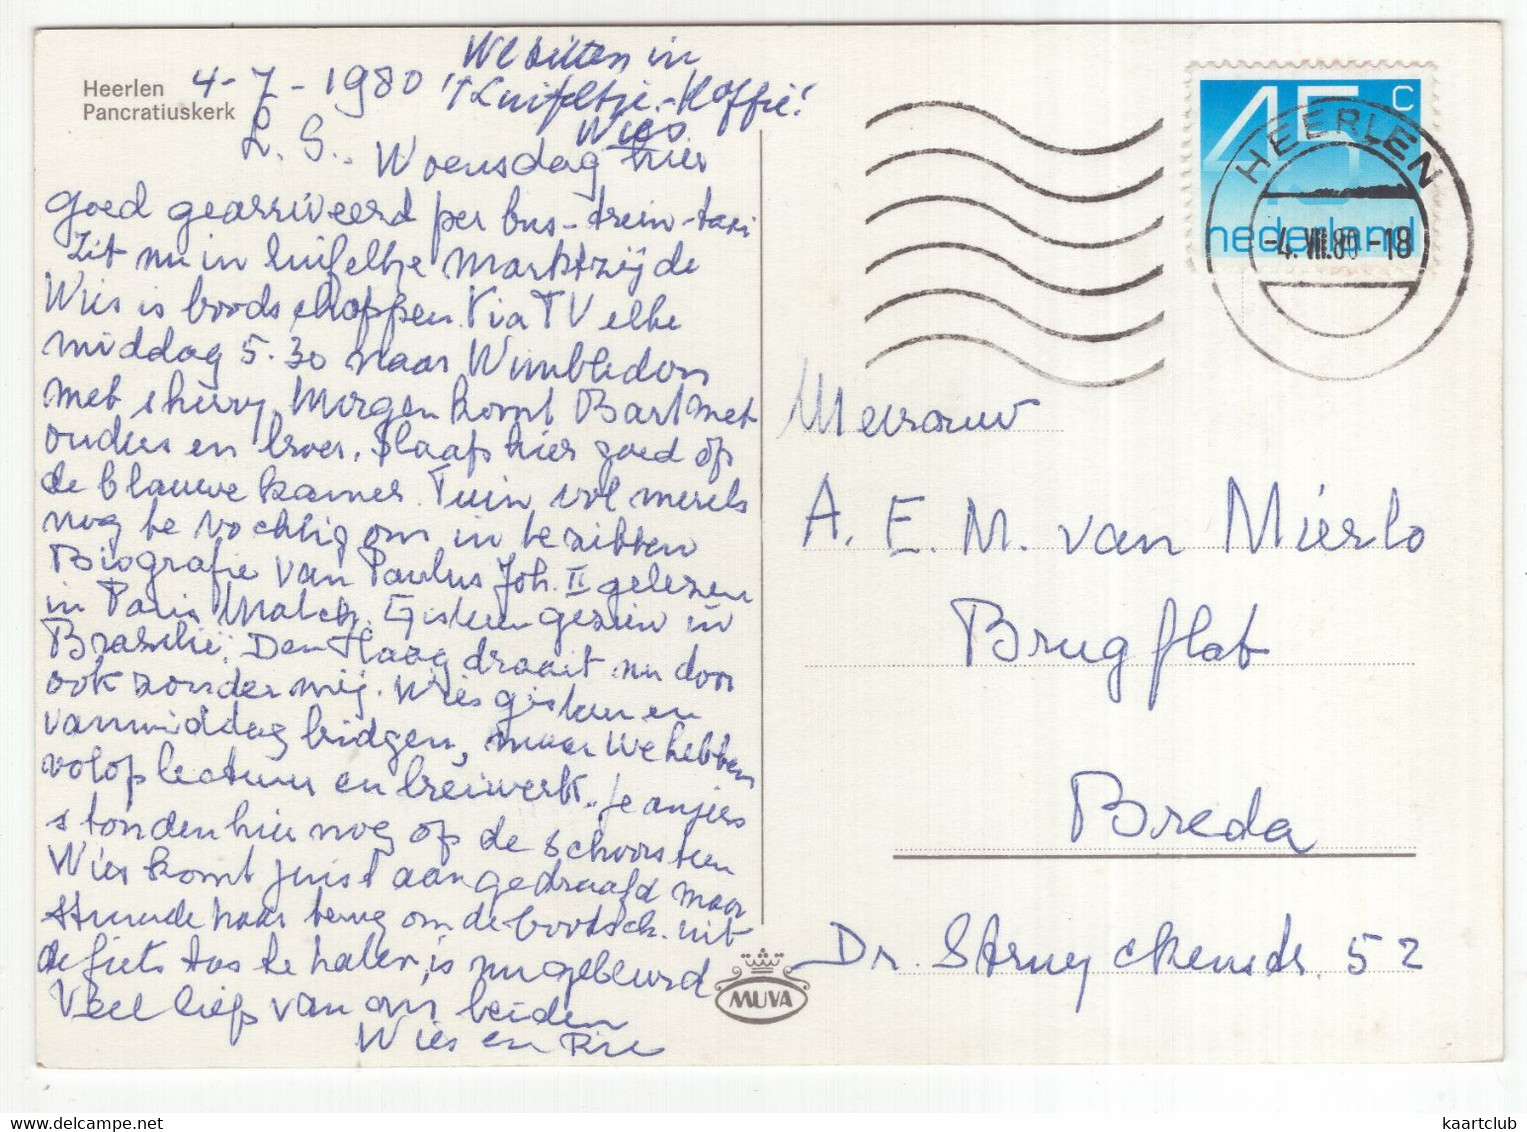 Heerlen
Pancratiuskerk
4-7-1980
We zitten in
't Luifeltje.-Koffie!
Wies.
L. S.. Woensdag hier
goed gearriveerd per bus-trein-taxi
Zit nu in luifeltje Marktzijde
Wies is boodschappen. Via TV elke
middag 5.30 naar Wimbledon
met sherry. Morgen komt Bart met
ouders en broer. Slaap hier goed op
de blauwe kamer. Tuin vol merels
nog te vochtig om in te zitten
Biografie van Paulus Joh. II gelezen
in Paris Match. Gisteren gezien in
Brazilië. Den Haag draait nu door
ook zonder mij. Wies gisteren en
vanmiddag bridgen, maar we hebben
volop lectuur en breiwerk. Je anjers
stonden hier nog op de schoorsteen
Wies komt juist aangedraafd maar
stuurde haar terug om de boodsch. uit
de fietstas te halen, is nu gebeurd
Veel liefs van ons beiden
Wies en
MUVA
45 c
nederland
HEERLEN
-4.VII.80-18
Mevrouw
A. E. M. van Mierlo
Brugflat
Breda
Dr. Struyckenstr. 52
kaartclub